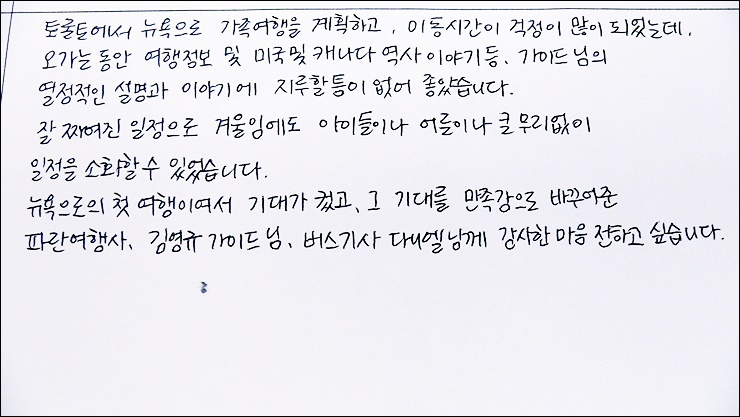 토론토에서 뉴욕으로 가족여행을 계획하고, 이동시간이 걱정이 많이 되었는데,
오가는 동안 여행정보 및 미국 및 캐나다 역사 이야기 등, 가이드님의
열정적인 설명과 이야기에 지루할 틈이 없어 좋았습니다.
잘 짜여진 일정으로 겨울임에도 아이들이나 어른이나 큰 무리없이
일정을 소화할 수 있었습니다.
뉴욕으로의 첫 여행이여서 기대가 컸고, 그 기대를 만족감으로 바꾸어준
파란여행사, 김영규 가이드님, 버스기사 다니엘님께 감사한 마음 전하고 싶습니다.